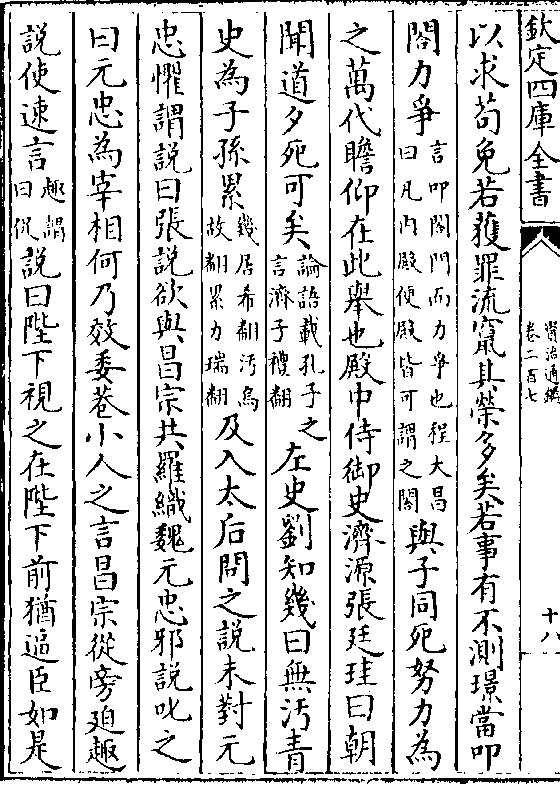 欽定四庫全書
資治通鑑
卷二百七
十八
以求苟免若獲罪流竄其榮多矣若事有不測璟當叩
閤力爭言叩閤門而力爭也程大昌曰凡内殿便殿皆可謂之閤與子同死努力為
之萬代瞻仰在此舉也殿中侍御史濟源張廷珪曰朝
聞道夕死可矣論語載孔子之言濟子禮翻左史劉知幾曰無汚青
史為子孫累幾居希翻汚烏故翻累力瑞翻及入太后問之說未對元
忠懼謂說曰張說欲與昌宗共羅織魏元忠邪說叱之
曰元忠為宰相何乃效委巷小人之言昌宗從旁廹趣
說使速言趣讀曰促說曰陛下視之在陛下前猶逼臣如是